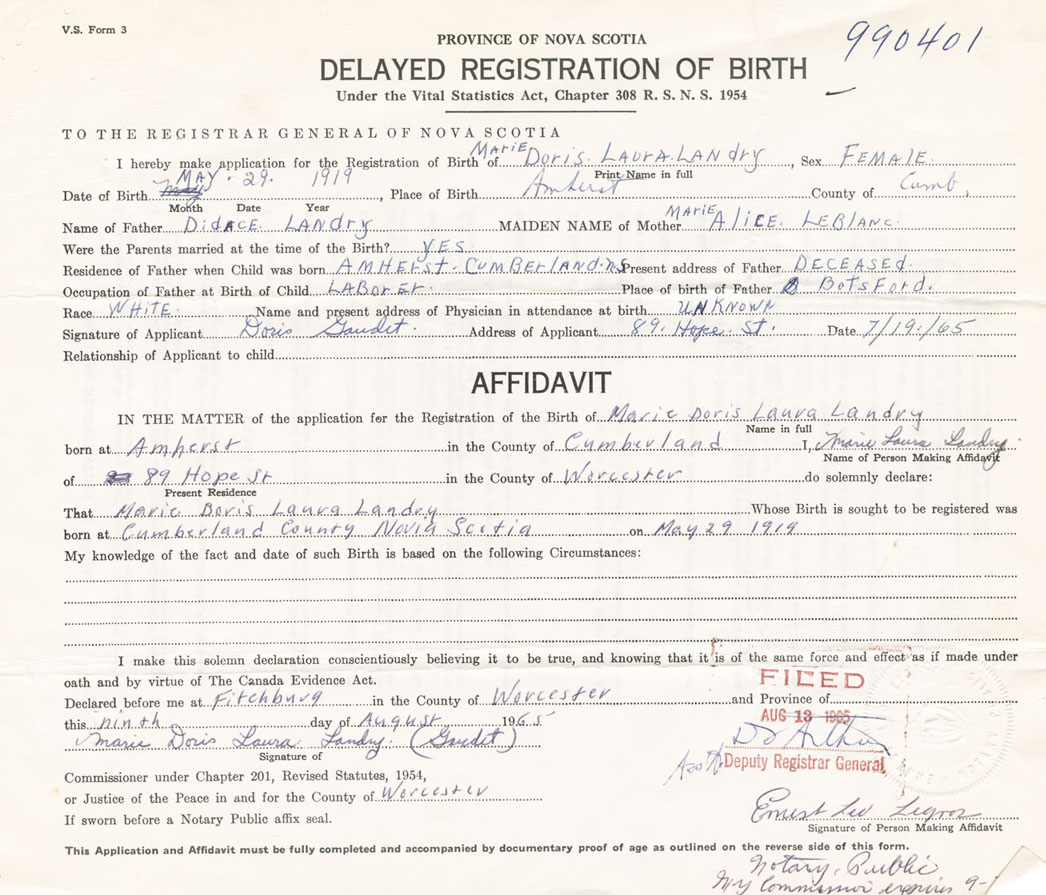 V.S. Form 3
990401
PROVINCE OF NOVA SCOTIA
DELAYED REGISTRATION OF BIRTH
Under the Vital Statistics Act, Chapter 308 R. S. N. S. 1954
TO THE REGISTRAR GENERAL OF NOVA SCOTIA
I hereby make application for the Registration of Birth of Marie Doris Laura Landry, Sex Female
Print Name in full
Date of Birth May 29. 1919, Place of Birth Amherst County of Cumb.
Month Date Year
Name of Father Didace Landry MAIDEN NAME of Mother Marie Alice LeBlanc
Were the Parents married at the time of the Birth? Yes
Residence of Father when Child was born Amherst. Cumberland. N.S Present address of Father Deceased
Occupation of Father at Birth of Child Laborer Place of birth of Father Botsford.
Race White Name and present address of Physician in attendance at birth unknown
Signature of Applicant Doris Gaudet. Address of Applicant 89. Hope. St. Date 7/19/65
Relationship of Applicant to child
AFFIDAVIT
IN THE MATTER of the application for the Registration of the Birth of Marie Doris Laura Landry
Name in full
born at Amherst in the County of Cumberland I, Marie Laura Landry
Name of Person Making Affidavit
of 89 Hope St in the County of Worcester do solemnly declare:
Present Residence
That Marie Doris Laura Landry Whose Birth is sought to be registered was
born at Cumberland County Novia Scotia on May 29 1919
My knowledge of the fact and date of such Birth is based on the following Circumstances:
I make this solemn declaration conscientiously believing it to be true, and knowing that it is of the same force and effect as if made under
oath and by virtue of The Canada Evidence Act.
FILED
Declared before me at Fitchburg in the County of Worcester and Province of
this ninth day of August 1965
AUG 13 1965
Marie Doris Laura Landry (Gaudet)
Signature of
Deputy Registrar General
Commissioner under Chapter 201, Revised Statutes, 1954,
or Justice of the Peace in and for the County of Worcester
Ernest Leo Legros
If sworn before a Notary Public affix seal.
Signature of Person Making Affidavit
This Application and Affidavit must be fully completed and accompanied by documentary proof of age as outlined on the reverse side of this form.
Notary Public
My Commission expires 9-